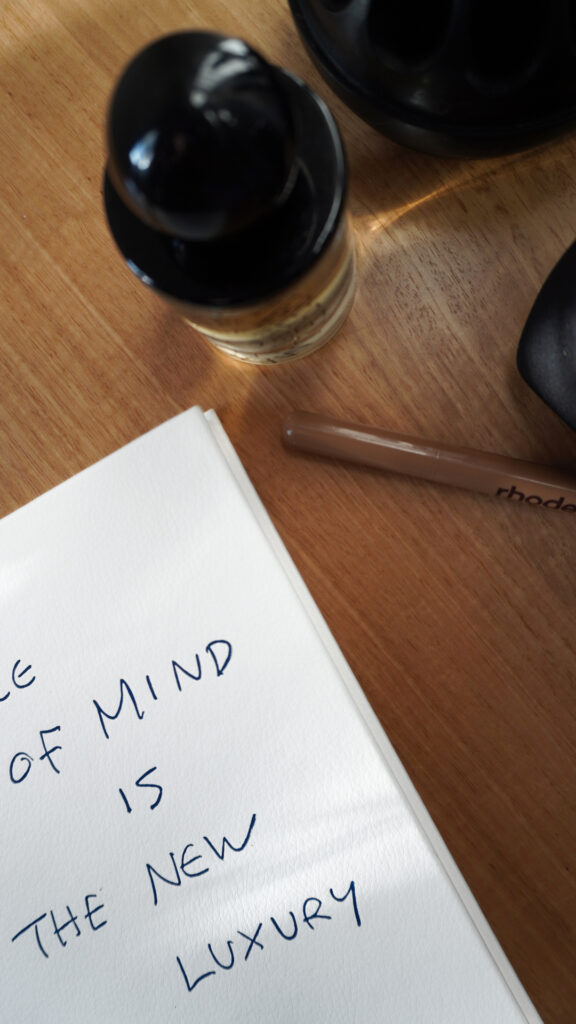 rhode
OF MIND
IS
THE NEW
LUXURY